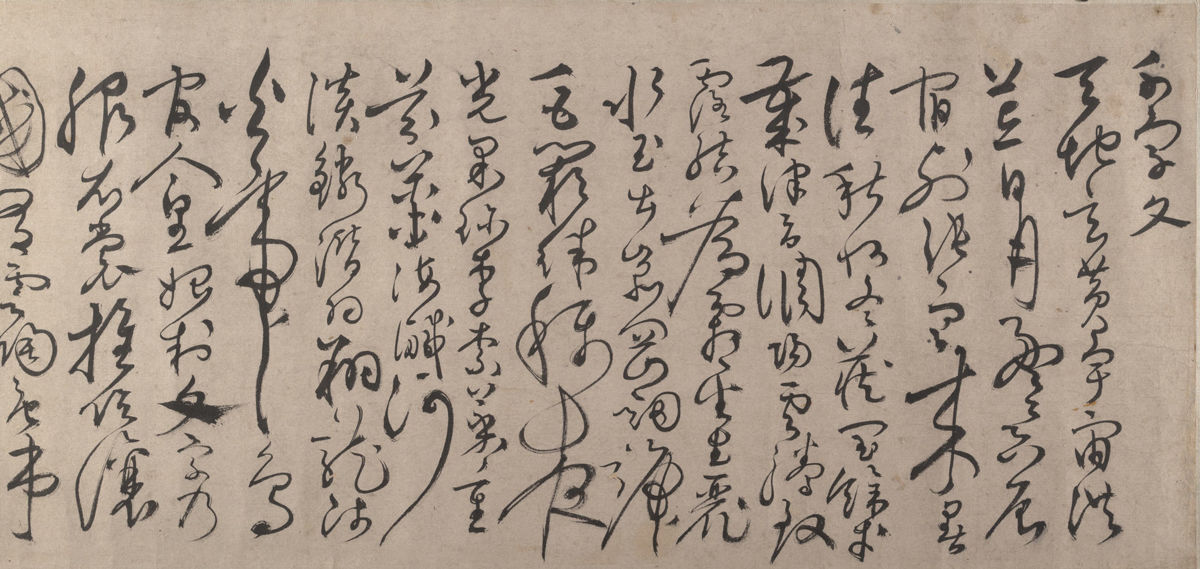 千字文
天地玄黃宇宙洪
荒日月盈昃辰
宿列張寒來暑
往秋收冬藏閏餘成
歲律呂調陽雲騰致
露結為霜金生麗
水玉出崑岡劍號
巨闕珠稱夜
光果珍李柰菜重
芥薑海鹹河
淡鱗潛羽翔龍師
火帝鳥
官人皇始制文字乃
服衣裳推位讓
國有虞陶唐弔